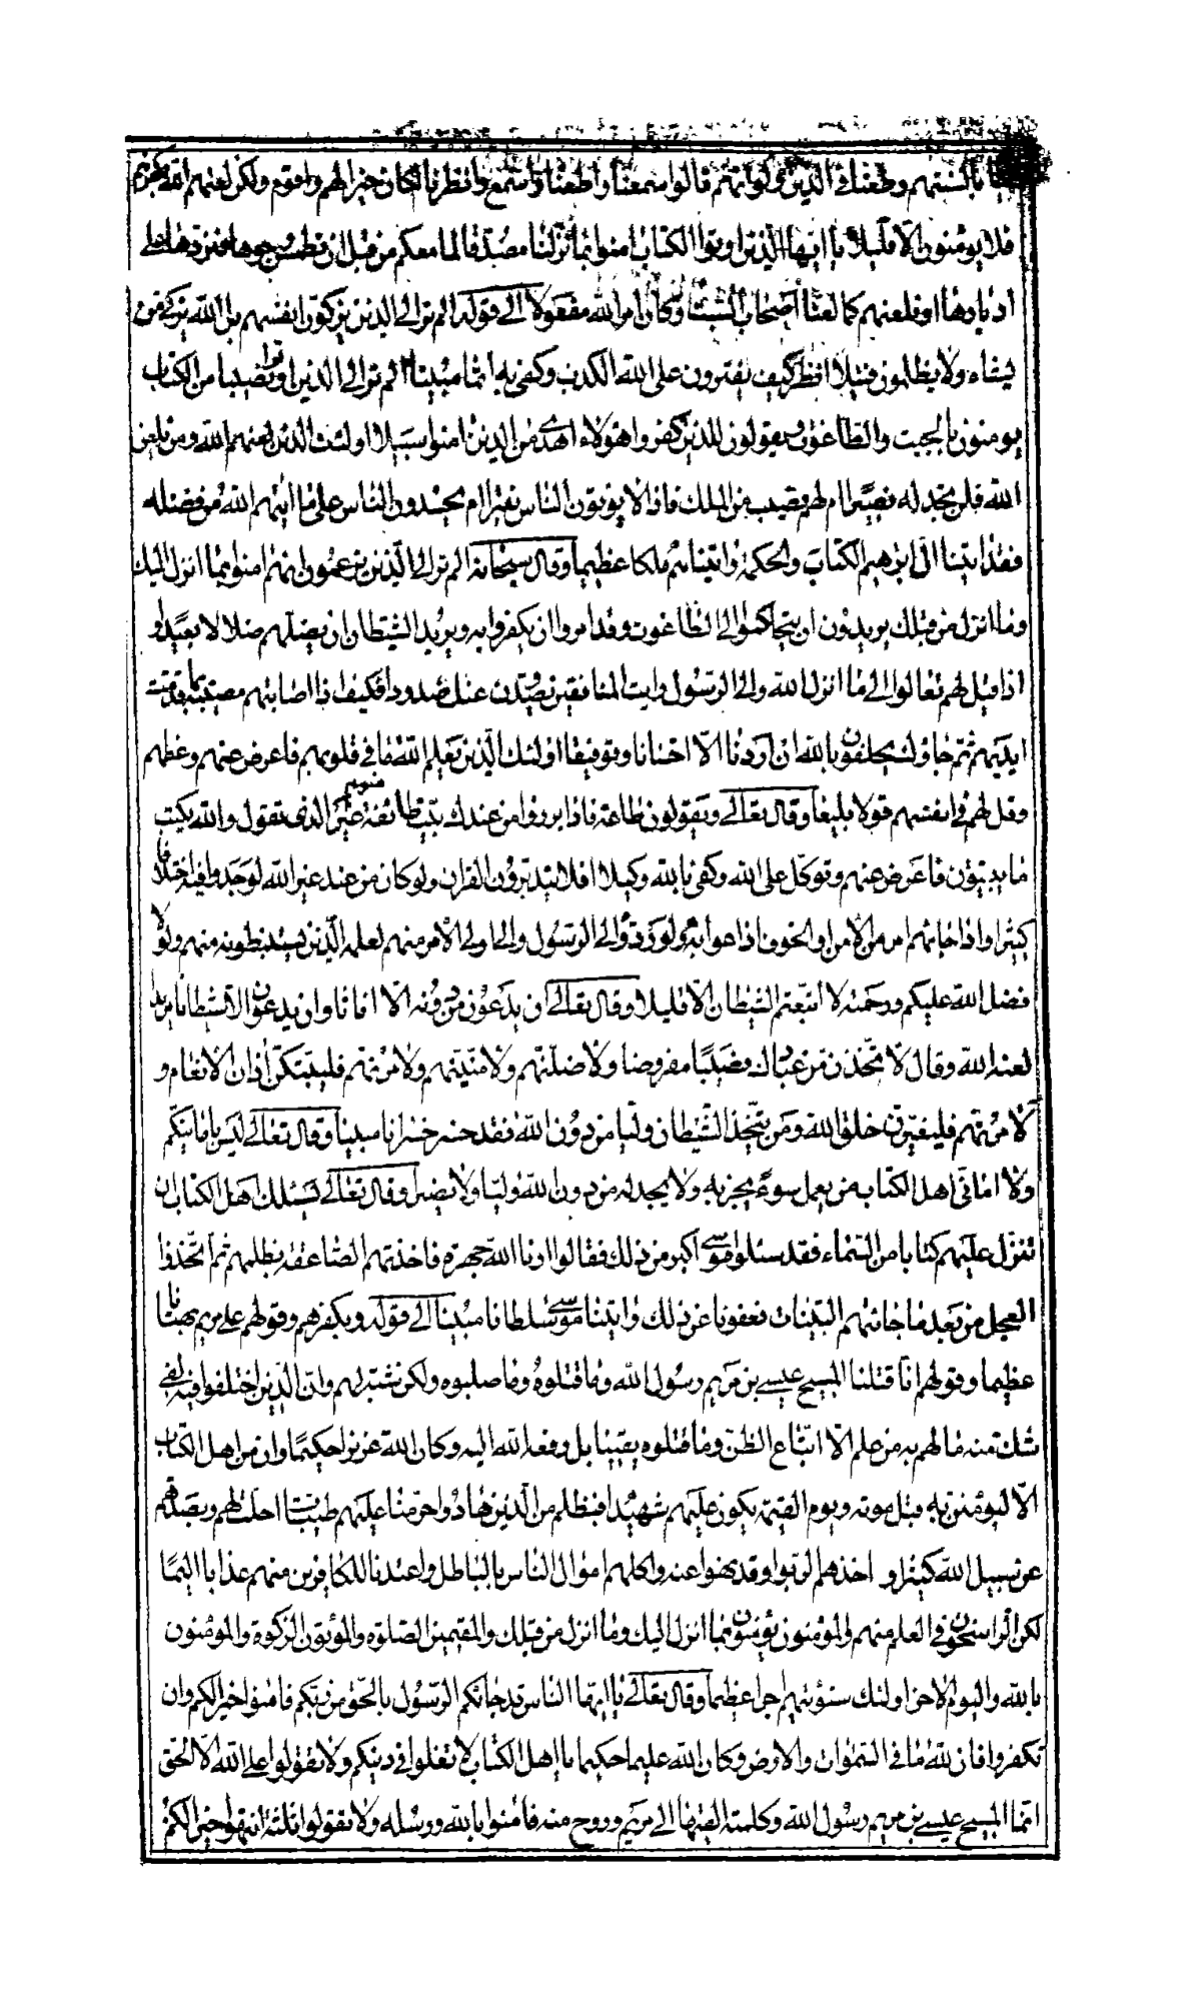 بالسنتهم وطعنا في الدين ولو انهم قالوا سمعنا واطعنا واسمع وانظرنا لكان خيرا لهم واقوم ولكن لعنهم الله بكفرهم
فلا يؤمنون الا قليلا يا ايها الذين اوتوا الكتاب امنوا بما نزلنا مصدقا لما معكم من قبل ان نطمس وجوها فنردها على
ادبارها او نلعنهم كما لعنا اصحاب السبت وكان امر الله مفعولا الى قوله الم تر الى الذين يزكون انفسهم بل الله يزكي من
يشاء ولا يظلمون فتيلا انظر كيف يفترون على الله الكذب وكفى به اثما مبينا الم تر الى الذين اوتوا نصيبا من الكتاب
يؤمنون بالجبت والطاغوت ويقولون للذين كفروا هؤلاء اهدى من الذين امنوا سبيلا اولئك الذين لعنهم الله ومن يلعن
الله فلن تجد له نصيرا ام لهم نصيب من الملك فاذا لا يؤتون الناس نقيرا ام يحسدون الناس على ما اتيهم الله من فضله
فقد اتينا ال ابرهيم الكتاب والحكمة واتيناهم ملكا عظيما وقال سبحانه الم تر الى الذين يزعمون انهم امنوا بما انزل اليك
وما انزل من قبلك يريدون ان يتحاكموا الى الطاغوت وقد امروا ان يكفروا به ويريد الشيطان ان يضلهم ضلالا بعيدا و
اذا قيل لهم تعالوا الى ما انزل الله والى الرسول رايت المنافقين يصدون عنك صدودا فكيف اذا اصابتهم مصيبة بما قدمت
ايديهم ثم جاؤك يحلفون بالله ان اردنا الا احسانا وتوفيقا اولئك الذين يعلم الله ما في قلوبهم فاعرض عنهم وعظهم
وقل لهم في انفسهم قولا بليغا وقال تعالى ويقولون طاعة فاذا برزوا من عندك بيت طائفة منهم غير الذي تقول والله يكتب
ما يبيتون فاعرض عنهم وتوكل على الله وكفى بالله وكيلا افلا يتدبرون القران ولو كان من عند غير الله لوجدوا فيه اختلافا
كثيرا واذا جائهم امر من الامن او الخوف اذاعوا به ولو ردوه الى الرسول والى اولي الامر منهم لعلمه الذين يستنبطونه منهم ولولا
فضل الله عليكم ورحمته لا اتبعتم الشيطان الا قليلا وقال تعالى ان يدعون من دونه الا اناثا وان يدعون الا شيطانا مريدا
لعنه الله وقال لاتخذن من عبادك نصيبا مفروضا ولاضلنهم ولامنينهم ولامرنهم فليبتكن اذان الانعام و
لامرنهم فليغيرن خلق الله ومن يتخذ الشيطان وليا من دون الله فقد خسر خسرانا مبينا وقال تعالى ليس بامانيكم
ولا اماني اهل الكتاب من يعمل سوءا يجز به ولا يجد له من دون الله وليا ولا نصيرا وقال تعالى يسئلك اهل الكتاب ان
تنزل عليهم كتابا من السماء فقد سئلوا موسى اكبر من ذلك فقالوا ارنا الله جهرة فاخذتهم الصاعقة بظلمهم ثم اتخذوا
العجل من بعد ما جائتهم البينات فعفونا عن ذلك واتينا موسى سلطانا مبينا الى قوله وبكفرهم وقولهم على مريم بهتانا
عظيما وقولهم انا قتلنا المسيح عيسى بن مريم رسول الله وما قتلوه وما صلبوه ولكن شبه لهم وان الذين اختلفوا فيه لفي
شك منه ما لهم به من علم الا اتباع الظن وما قتلوه يقينا بل رفعه الله اليه وكان الله عزيزا حكيما وان من اهل الكتاب
الا ليؤمنن به قبل موته ويوم القيمة يكون عليهم شهيدا فبظلم من الذين هادوا حرمنا عليهم طيبات احلت لهم وبصدهم
عن سبيل الله كثيرا و اخذهم الربوا وقد نهوا عنه واكلهم اموال الناس بالباطل واعتدنا للكافرين منهم عذابا اليما
لكن الراسخون في العلم منهم والمؤمنون يؤمنون بما انزل اليك وما انزل من قبلك والمقيمين الصلوة والمؤتون الزكوة والمؤمنون
بالله واليوم الاخر اولئك سنؤتيهم اجرا عظيما وقال تعالى يا ايها الناس قد جائكم الرسول بالحق من ربكم فامنوا خيرا لكم وان
تكفروا فان لله ما في السموات والارض وكان الله عليما حكيما يا اهل الكتاب لا تغلوا في دينكم ولا تقولوا على الله الا الحق
انما المسيح عيسى بن مريم رسول الله وكلمته القيها الى مريم وروح منه فامنوا بالله ورسله ولا تقولوا ثلثة انتهوا خيرا لكم